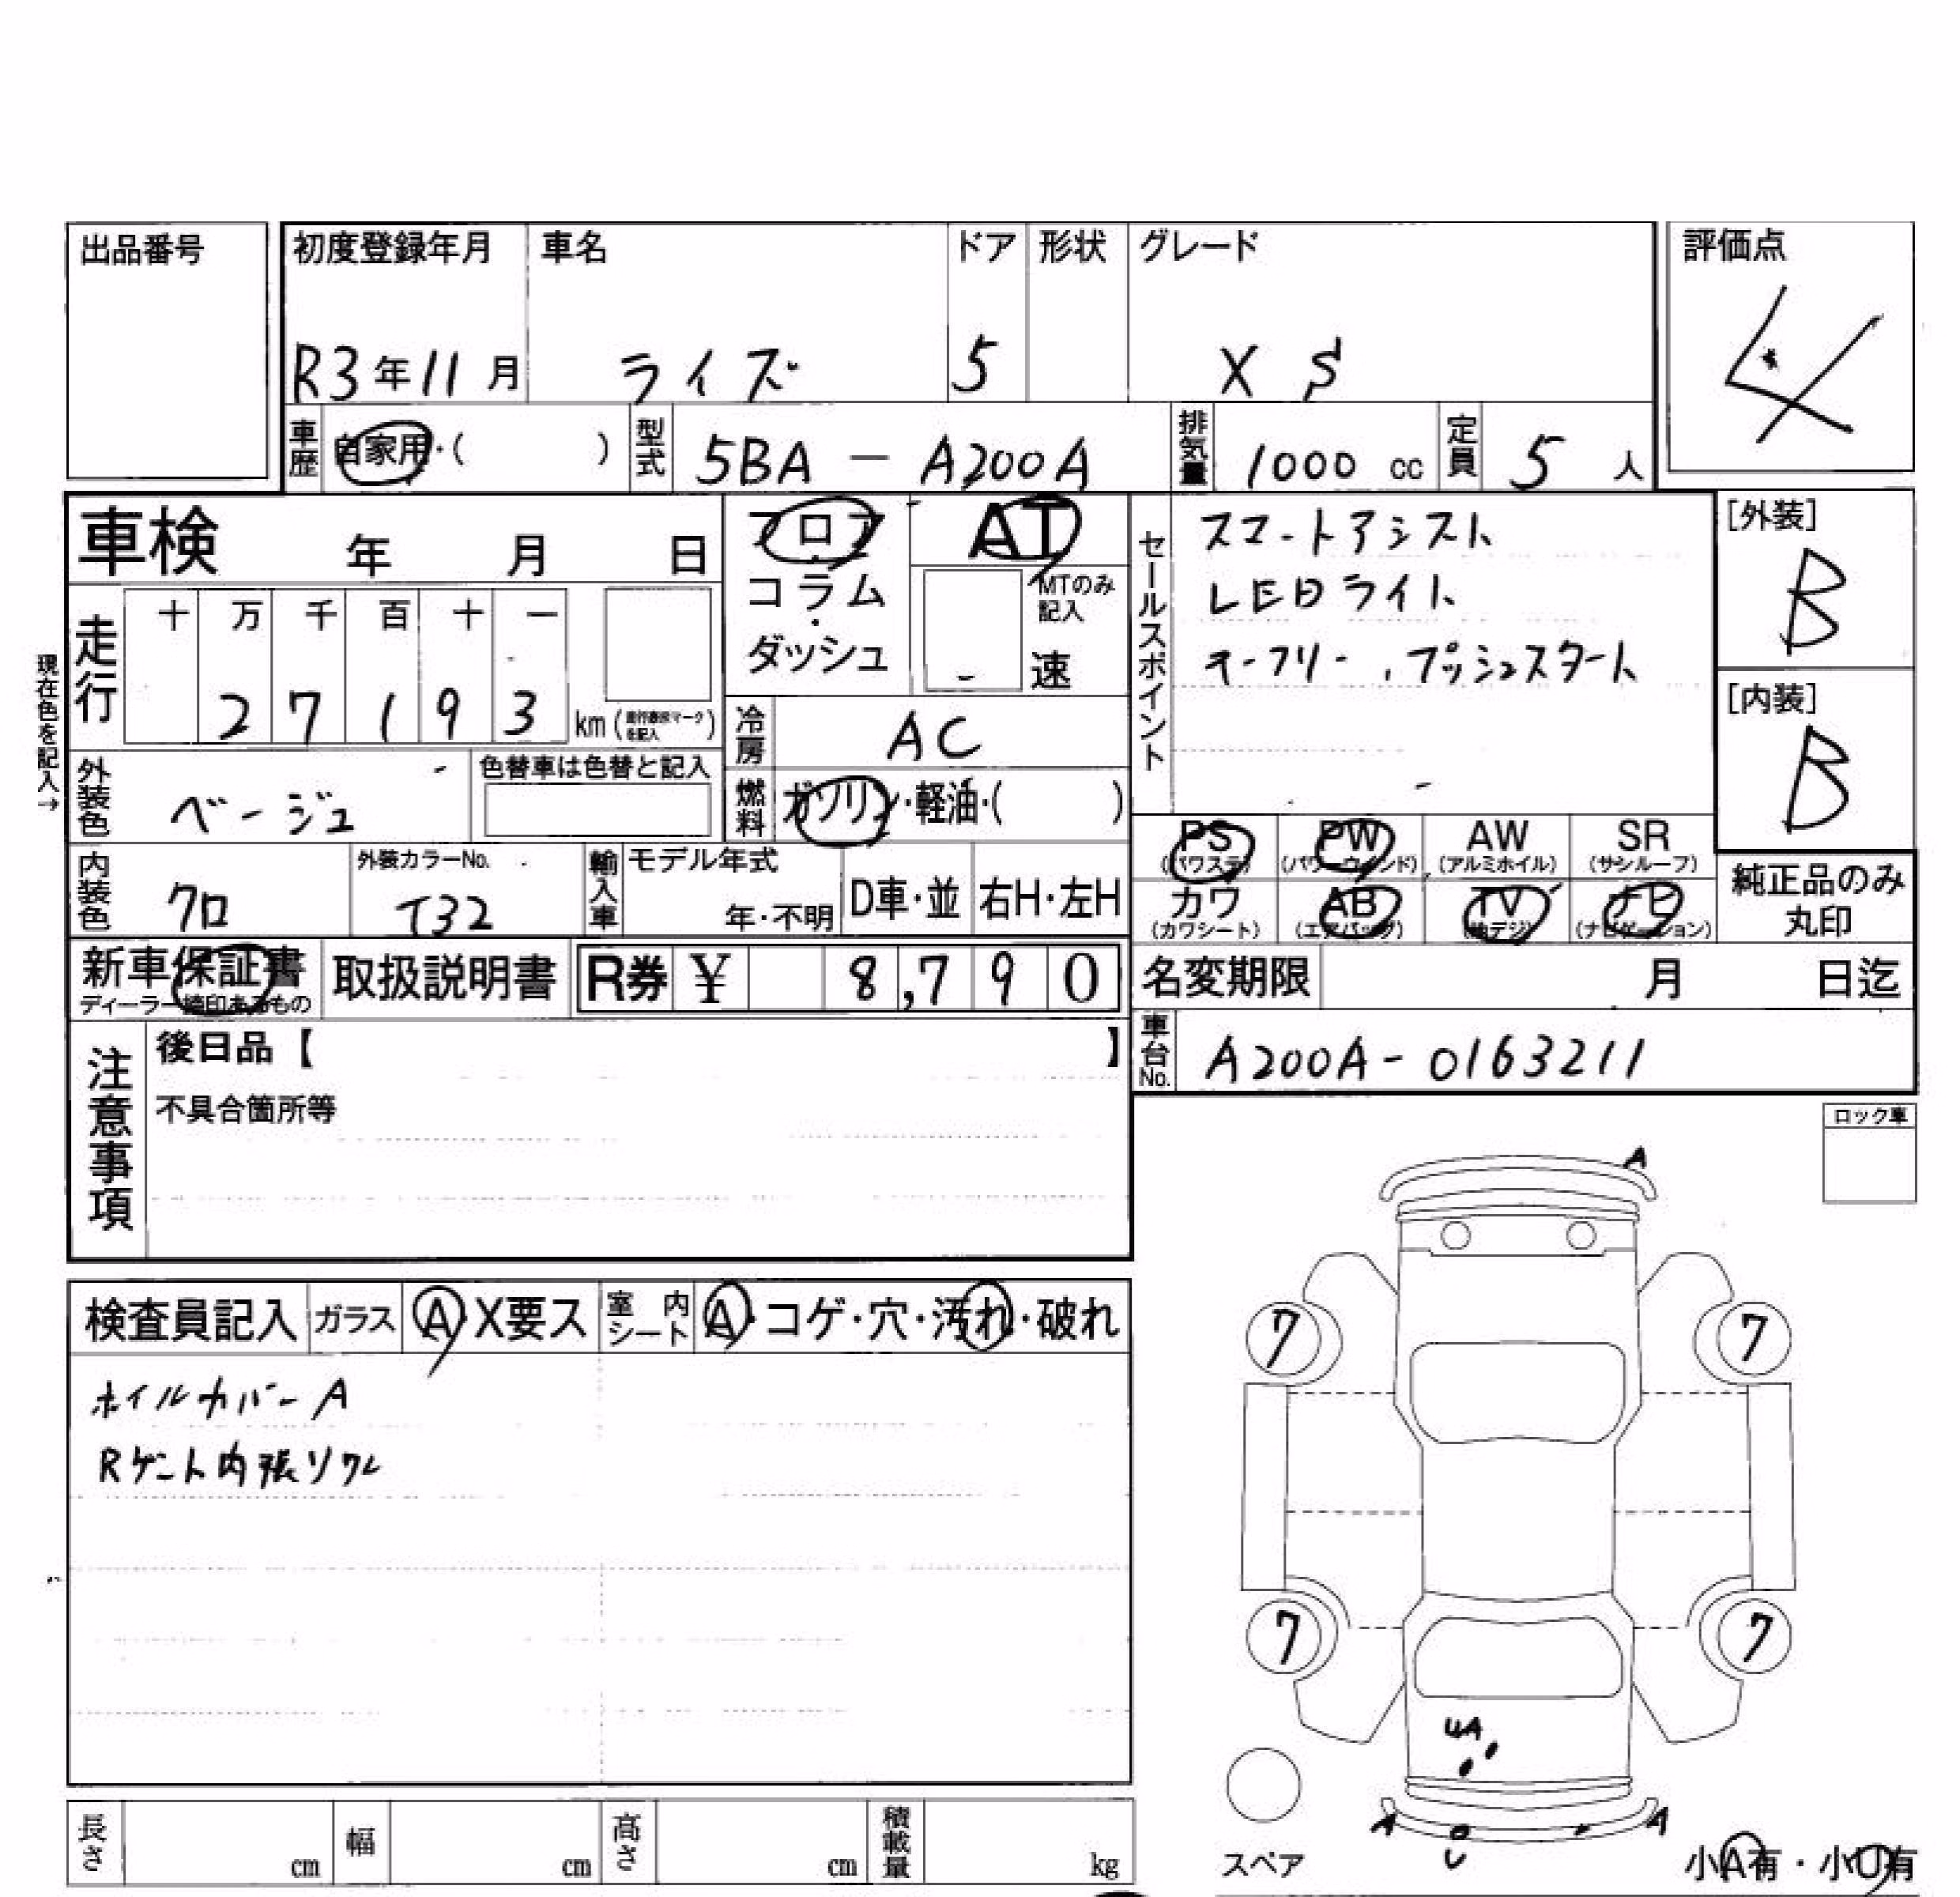 出品番号
初度登録年月 車名 ドア 形状 グレード 評価点
R3年11月 ライズ 5 X S 4
車歴 自家用・( ) 型式 5BA - A200A 排気量 1000 cc 定員 5 人
車検 年 月 日
フロア・コラム・ダッシュ
AT
MTのみ記入
速
セールスポイント
スマートアシスト
LEDライト
キーフリー , プッシュスタート
[外装]
B
[内装]
B
現在色を記入→
走行 十 万 千 百 十 一
2 7 1 9 3 km (走行要示マークを記入)
冷房 AC
外装色 ベージュ 色替車は色替と記入
燃料 ガソリン・軽油・( )
PS (パワステ) PW (パワーウインド) AW (アルミホイル) SR (サンルーフ)
カワ (カワシート) AB (エアバッグ) TV (地デジ) ナビ (ナビゲーション)
純正品のみ丸印
内装色 クロ 外装カラーNo. T32 輸入車 モデル年式 年・不明 D車・並 右H・左H
新車保証書 取扱説明書 R券 ¥ 8,790
名変期限 月 日迄
車台No. A200A - 0163211
注意事項
後日品【 】
不具合箇所等
ロック車
検査員記入 ガラス A・X要ス 室内シート A・コゲ・穴・汚れ・破れ
ホイルカバー A
Rゲート内張ソクレ
A
7 7
7 7
UA
A A
U
スペア
小A有・小U有
長さ cm 幅 cm 高さ cm 積載量 kg